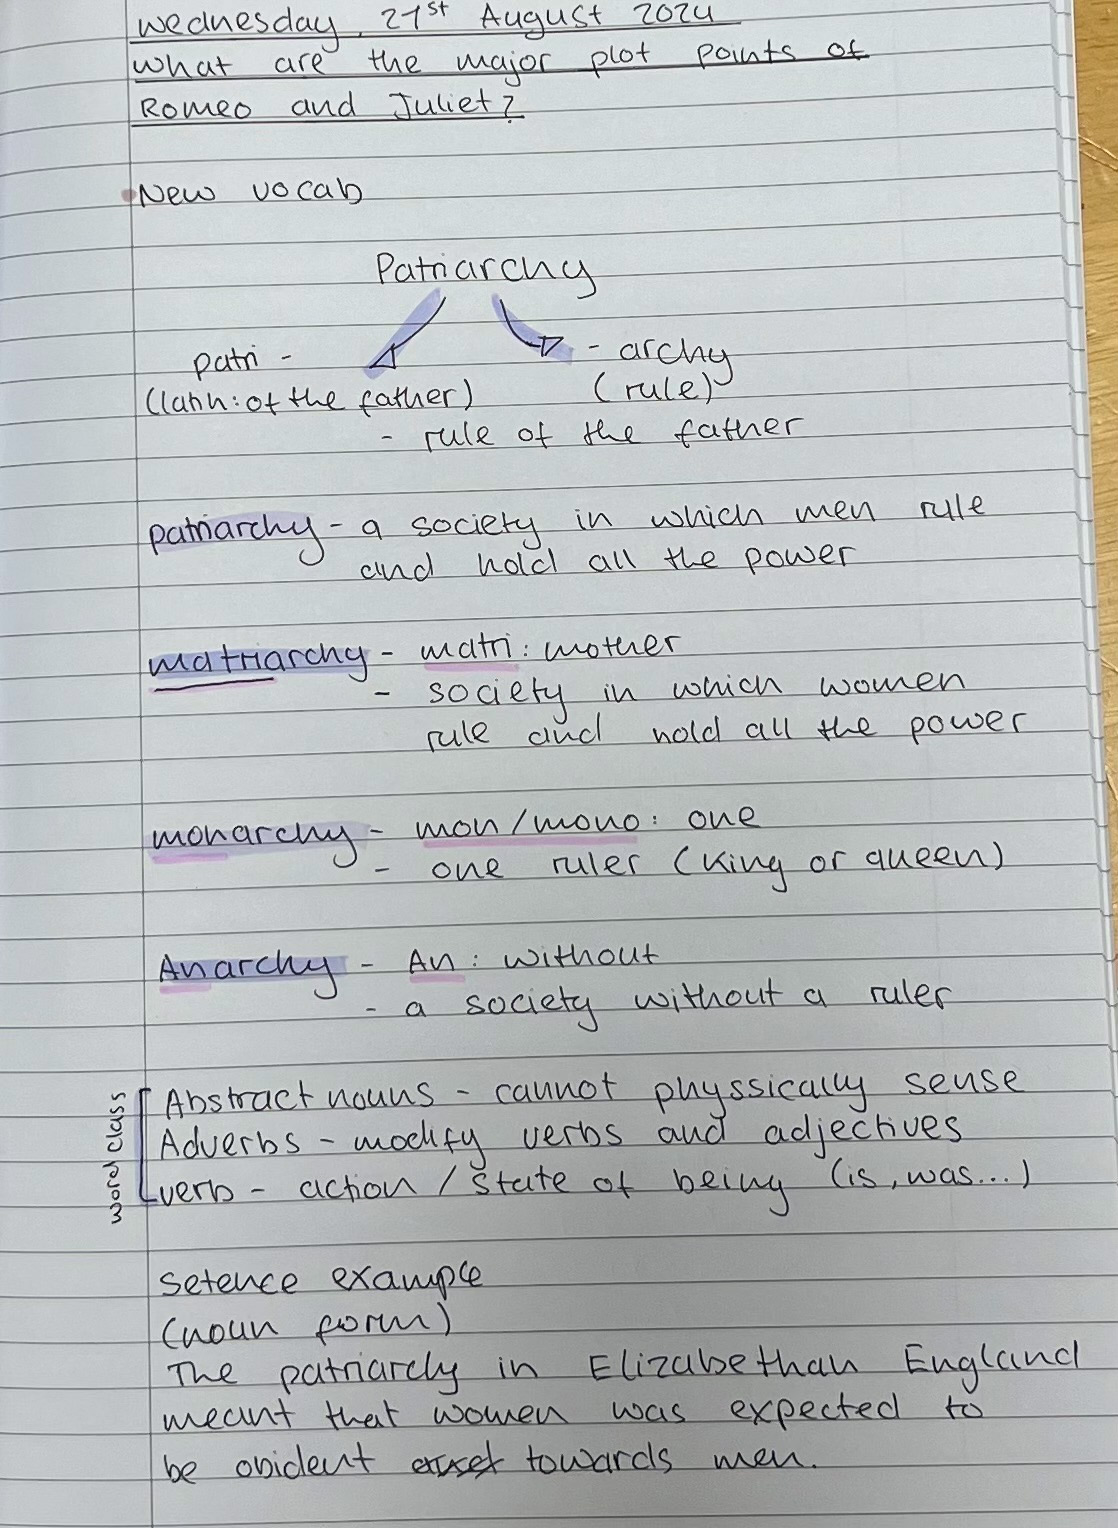 Wednesday, 21st August 2024
What are the major plot points of
Romeo and Juliet?
New vocab
Patriarchy
patri - - archy
(latin: of the father) (rule)
- rule of the father
patriarchy - a society in which men rule
and hold all the power
matriarchy - matri: mother
- society in which women
rule and hold all the power
monarchy - mon/mono: one
- one ruler (King or queen)
Anarchy - An: without
- a society without a ruler
word class
Abstract nouns - cannot physsically sense
Adverbs - modify verbs and adjectives
verb - action / state of being (is, was...)
setence example
(noun form)
The patriarcly in Elizabethan England
meant that women was expected to
be obident towards men.